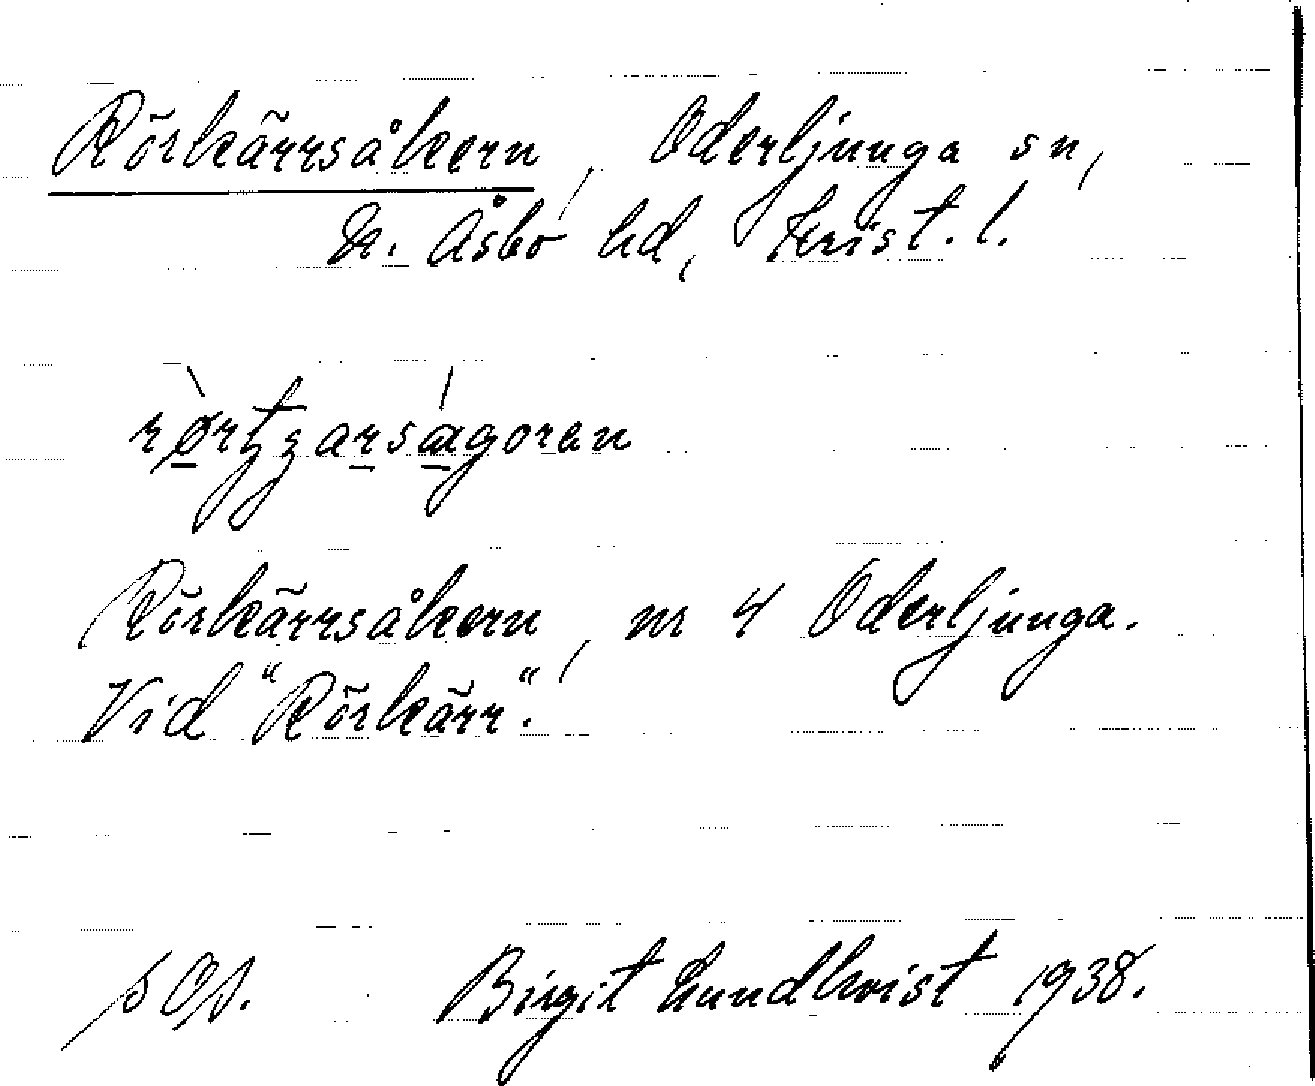 Rörkärrsåkern, Oderljunga sn,
N. Åsbo hd, Krist. l.
Rörkärrsåkern, nr 4 Oderljunga.
Vid "Rörkärr".
Birgit Lundkvist 1938.